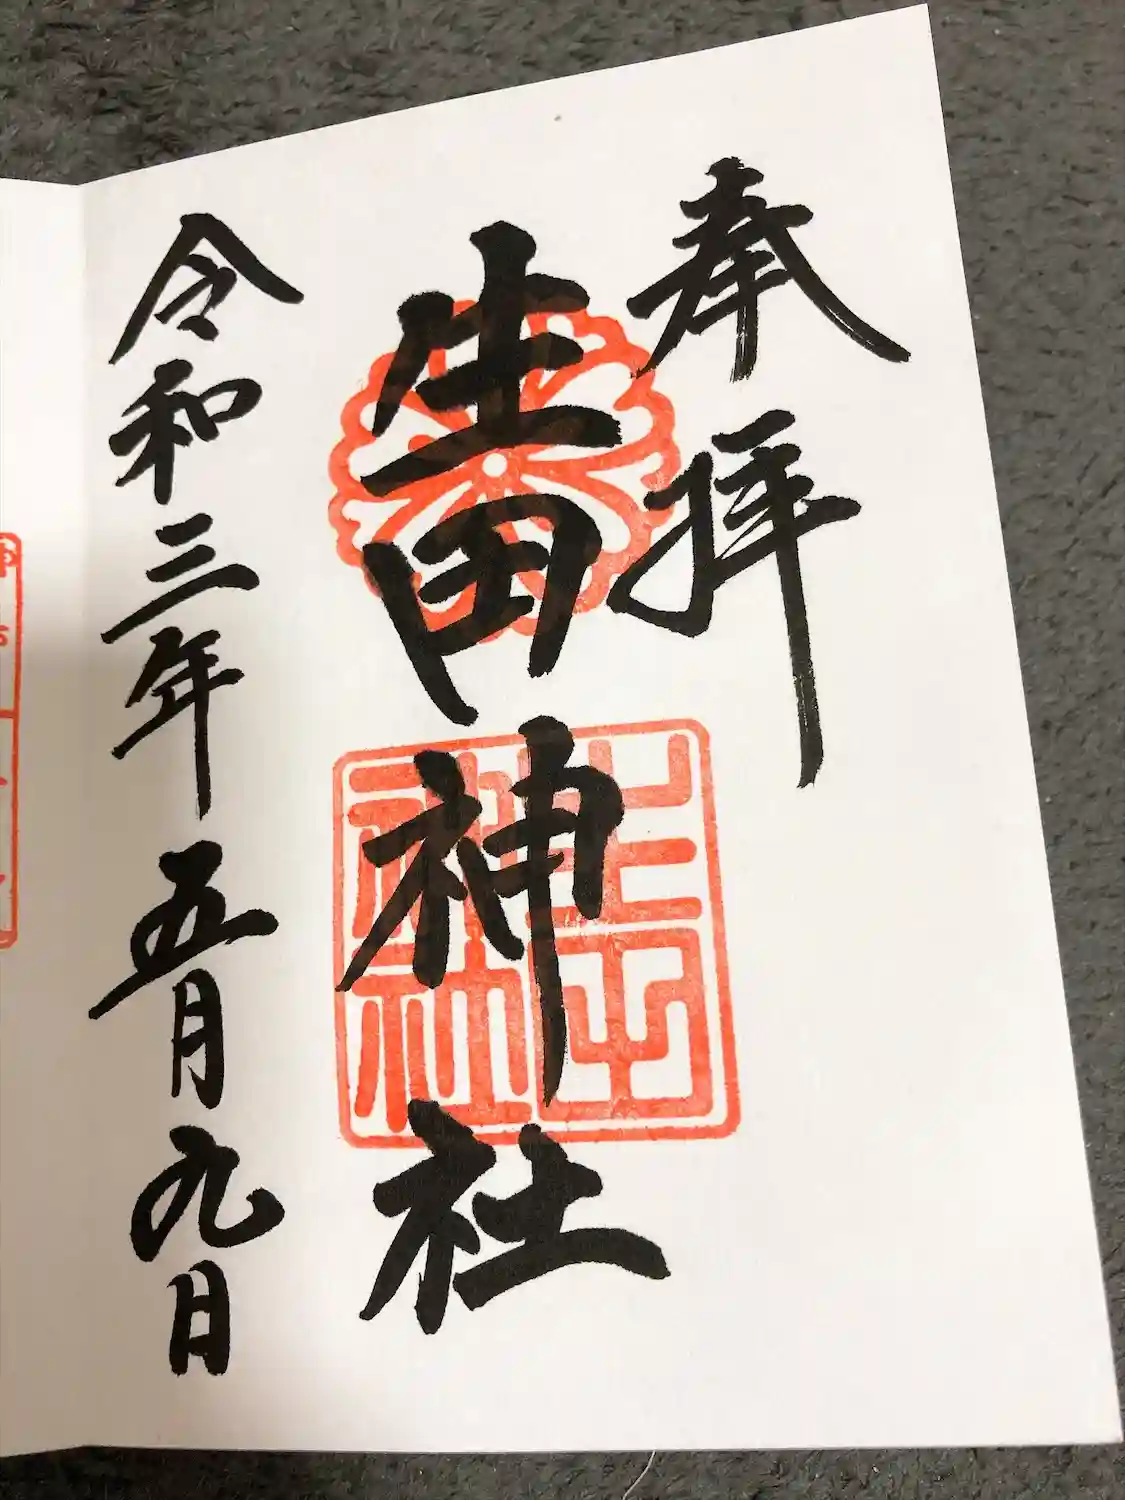 奉拝
生田神社
生田神社
令和三年五月九日